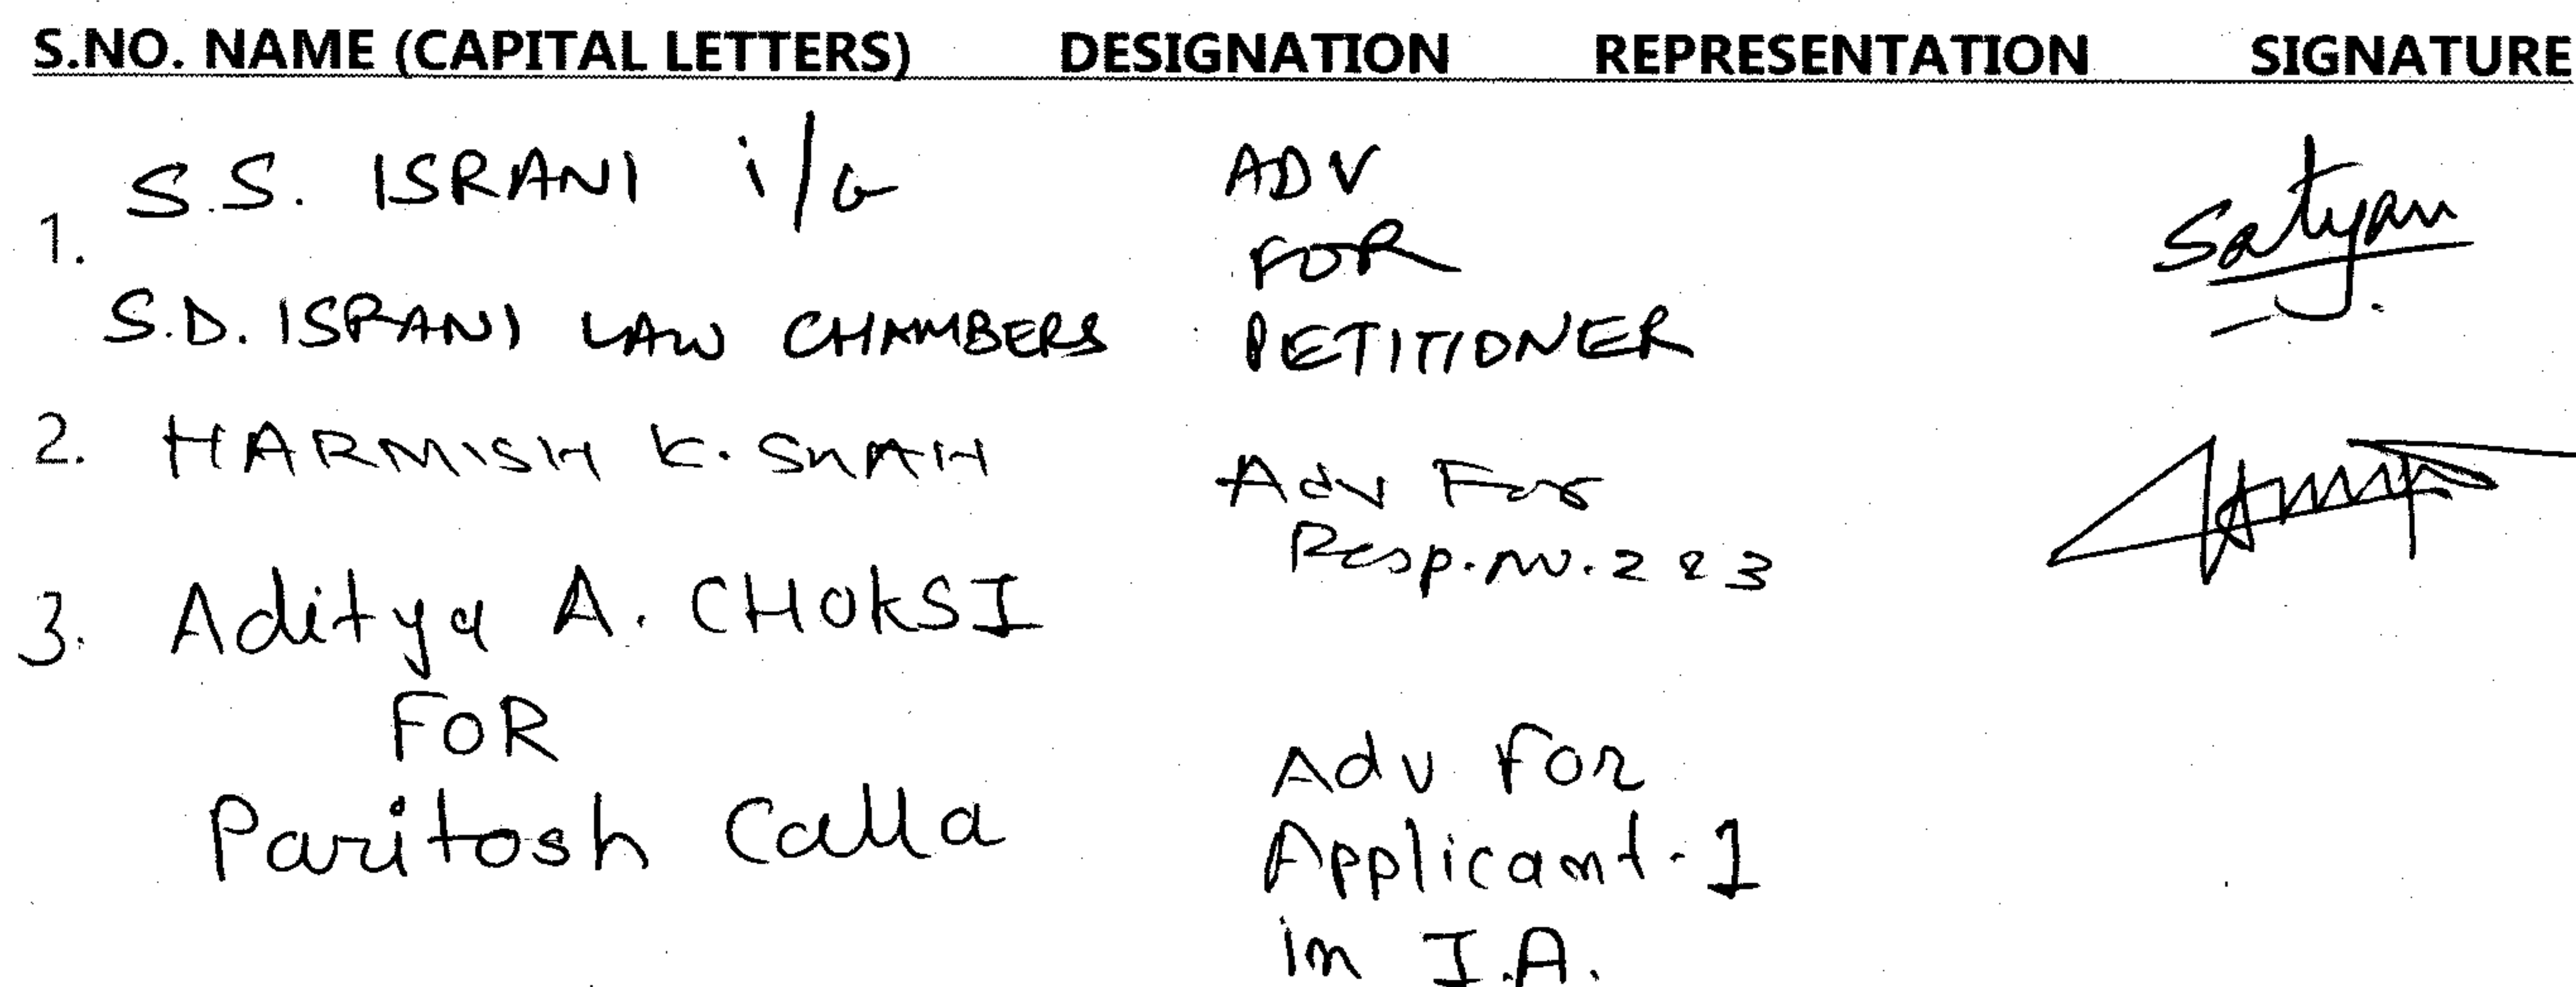 S.NO. NAME (CAPITAL LETTERS) DESIGNATION REPRESENTATION SIGNATURE
1. S.S. ISRANI i/b ADV
FOR Satyan
S.D. ISRANI LAW CHAMBERS PETITIONER
2. HARMISH K. SHAH Adv For
Resp. No. 2 & 3
3. Aditya A. CHOKSI
FOR
Paritosh Calla Adv For
Applicant-1
in I.A.